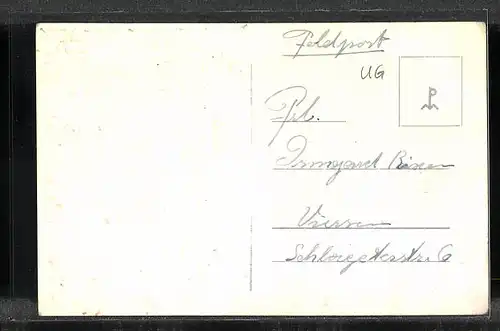 Feldpost
UG
Frl.
Irmgard Rixen
Viersen
Schlageterstr. 6